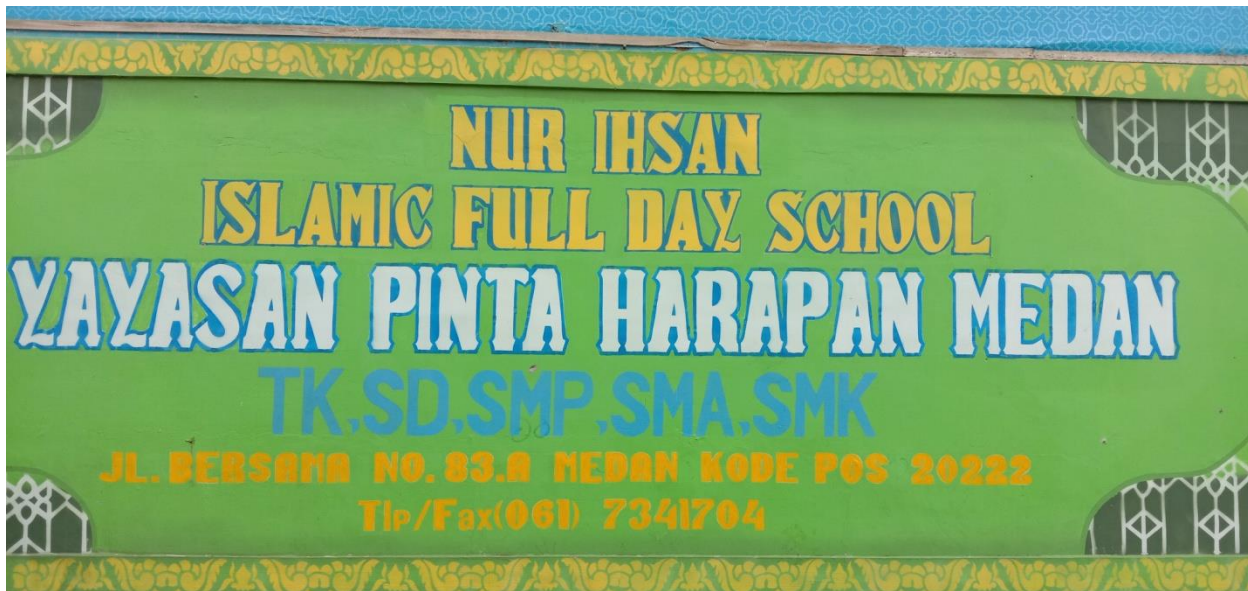 NUR IHSAN
ISLAMIC FULL DAY SCHOOL
YAYASAN PINTA HARAPAN MEDAN
TK,SD,SMP,SMA,SMK
JL. BERSAMA NO. 83.A MEDAN KODE POS 20222
Tlp/Fax(061) 7341704